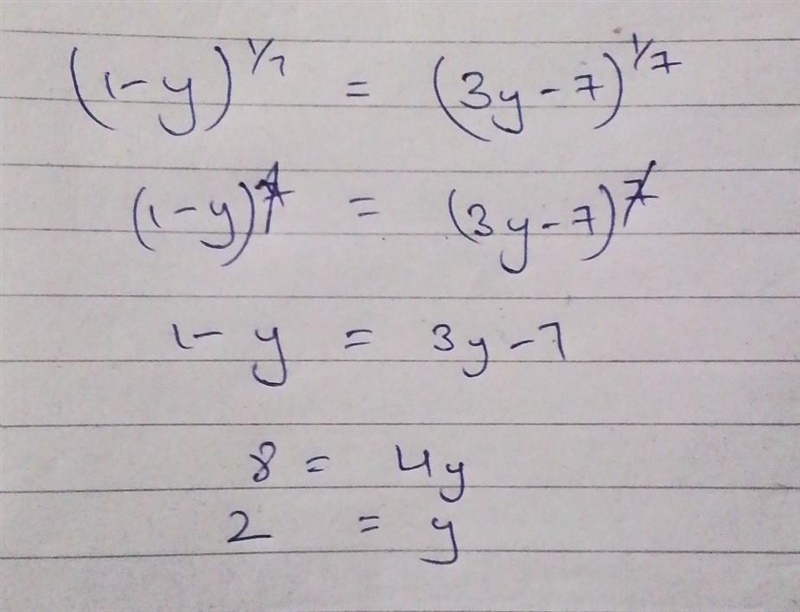 (1-y)^1/7 = (3y-7)^1/7
(1-y)^7 = (3y-7)^7
1-y = 3y-7
8 = 4y
2 = y